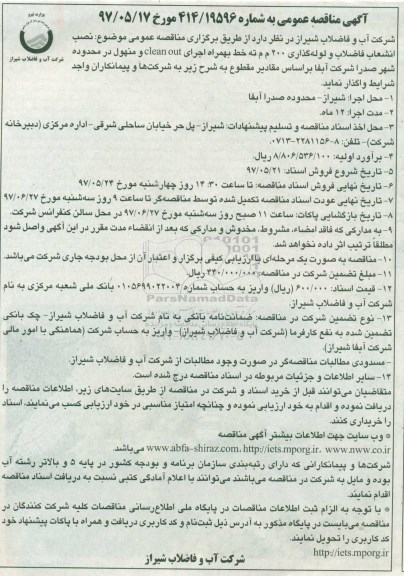 آگهی مناقصه عمومی به شماره ۴۱۴/۱۹۵۹۶ مورخ ۹۷/۰۵/۱۷
وزارت نیرو
شرکت آب و فاضلاب شیراز
شرکت آب و فاضلاب شیراز در نظر دارد از طریق برگزاری مناقصه عمومی موضوع: نصب
انشعاب فاضلاب و لوله‌گذاری ۲۰۰ م م ته خط بهمراه اجرای clean out و منهول در محدوده
شهر صدرا شرکت آبفا براساس مقادیر مقطوع به شرح زیر به شرکت‌ها و پیمانکاران واجد
شرایط واگذار نماید.
۱- محل اجرا: شیراز- محدوده صدرا آبفا
۲- مدت اجرا: ۱۲ ماه.
۳- محل اخذ اسناد مناقصه و تسلیم پیشنهادات: شیراز- پل حر خیابان ساحلی شرقی- اداره مرکزی (دبیرخانه
شرکت)- تلفن: ۸-۲۲۸۱۱۵۶-۰۷۱۳.
۴- برآورد اولیه: ۸/۸۰۶/۵۳۶/۱۰۰ ریال.
۵- تاریخ شروع فروش اسناد: ۹۷/۰۵/۲۱
۶- تاریخ نهایی فروش اسناد مناقصه: تا ساعت ۱۴:۳۰ روز چهارشنبه مورخ ۹۷/۰۵/۲۴
۷- تاریخ نهایی عودت اسناد مناقصه تکمیل شده توسط مناقصه‌گر تا ساعت ۹ روز سه‌شنبه مورخ ۹۷/۰۶/۲۷
۸- تاریخ بازگشایی پاکات: ساعت ۱۱ صبح روز سه‌شنبه مورخ ۹۷/۰۶/۲۷ در محل سالن کنفرانس شرکت.
۹- به مدارکی که فاقد امضاء، مشروط، مخدوش و مدارکی که بعد از انقضاء مدت مقرر در این آگهی واصل شود
مطلقا ترتیب اثر داده نخواهد شد.
۱۰- مناقصه به صورت یک مرحله‌ای با ارزیابی کیفی برگزار و اعتبار آن از محل بودجه جاری شرکت می‌باشد.
۱۱- مبلغ تضمین شرکت در مناقصه: ۴۴۰/۰۰۰/۰۰۰ ریال.
۱۲- قیمت اسناد: ۶۰۰/۰۰۰ (ریال) واریز به حساب شماره ۰۱۰۵۶۹۹۰۲۲۰۰۴ بانک ملی شعبه مرکزی به نام
شرکت آب و فاضلاب شیراز.
ParsNamadData
۱۳- نوع تضمین شرکت در مناقصه: ضمانت‌نامه بانکی به نام شرکت آب و فاضلاب شیراز- چک بانکی
تضمین شده به نفع کارفرما (شرکت آب و فاضلاب شیراز)- واریز به حساب شرکت (هماهنگی با امور مالی
شرکت آبفا شیراز).
- مسدودی مطالبات مناقصه‌گر در صورت وجود مطالبات از شرکت آب و فاضلاب شیراز.
۱۴- سایر اطلاعات و جزئیات مربوطه در اسناد مناقصه درج شده است.
متقاضیان می‌توانند قبل از خرید اسناد و شرکت در مناقصه از طریق سایت‌های زیر، اطلاعات مناقصه را
دریافت نموده و اقدام به خود ارزیابی نموده و چنانچه امتیاز مناسبی در خود ارزیابی کسب می‌نمایند، اسناد
را خریداری کنند.
* وب سایت جهت اطلاعات بیشتر آگهی مناقصه
www.abfa-shiraz.com، http://iets.mporg.ir، www.nww.co.ir می‌باشد.
شرکت‌ها و پیمانکارانی که دارای رتبه‌بندی سازمان برنامه و بودجه کشور در پایه ۵ و بالاتر رشته آب
بوده و مایل به شرکت در مناقصه می‌باشند می‌توانند با اعلام آمادگی کتبی نسبت به دریافت اسناد مناقصه
اقدام نمایند.
* با توجه به الزام ثبت اطلاعات مناقصات در پایگاه ملی اطلاع‌رسانی مناقصات کلیه شرکت کنندگان در
مناقصه می‌بایست در پایگاه مذکور به آدرس ذیل ثبت‌نام و کد کاربری دریافت و همراه با پاکات پیشنهاد خود
کد کاربری را تحویل نمایند.
http://iets.mporg.ir
شرکت آب و فاضلاب شیراز